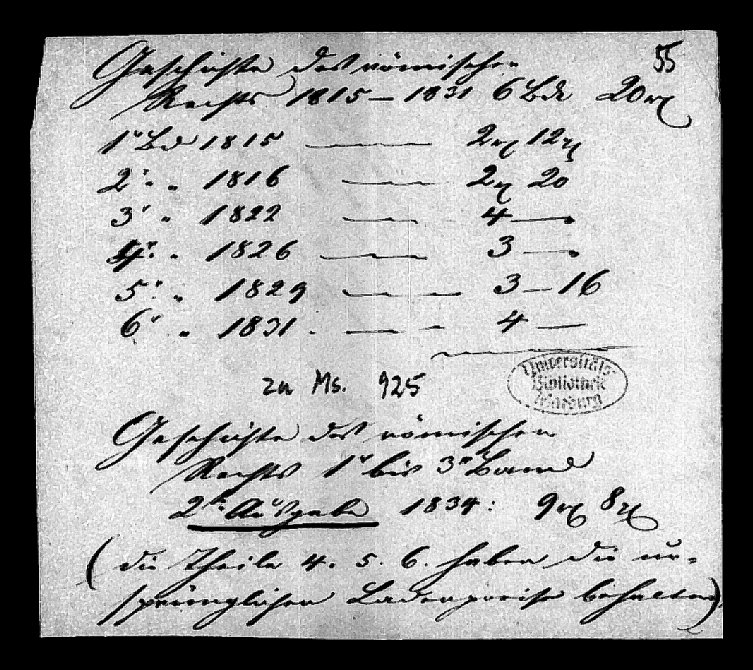 55
Geschichte des römischen
Rechts 1815 – 1831 6 Bde 20 rℓ
1r Bd 1815 — 2 rℓ 12 gℓ
2r " " 1816 — 2 rℓ 20
3r " 1822 — 4 —
4r " " 1826 — 3 —
5r " " 1829 — 3 — 16
6r " 1831 . — 4 —
zu Ms. 925
Universitäts-
Bibliothek
Marburg
Geschichte des römischen
Rechts 1r bis 3r Band
2te Ausgabe 1834: 9 rℓ 8 gℓ
(die Theile 4. 5. 6. haben die ur-
sprünglichen Ladenpreise behalten)